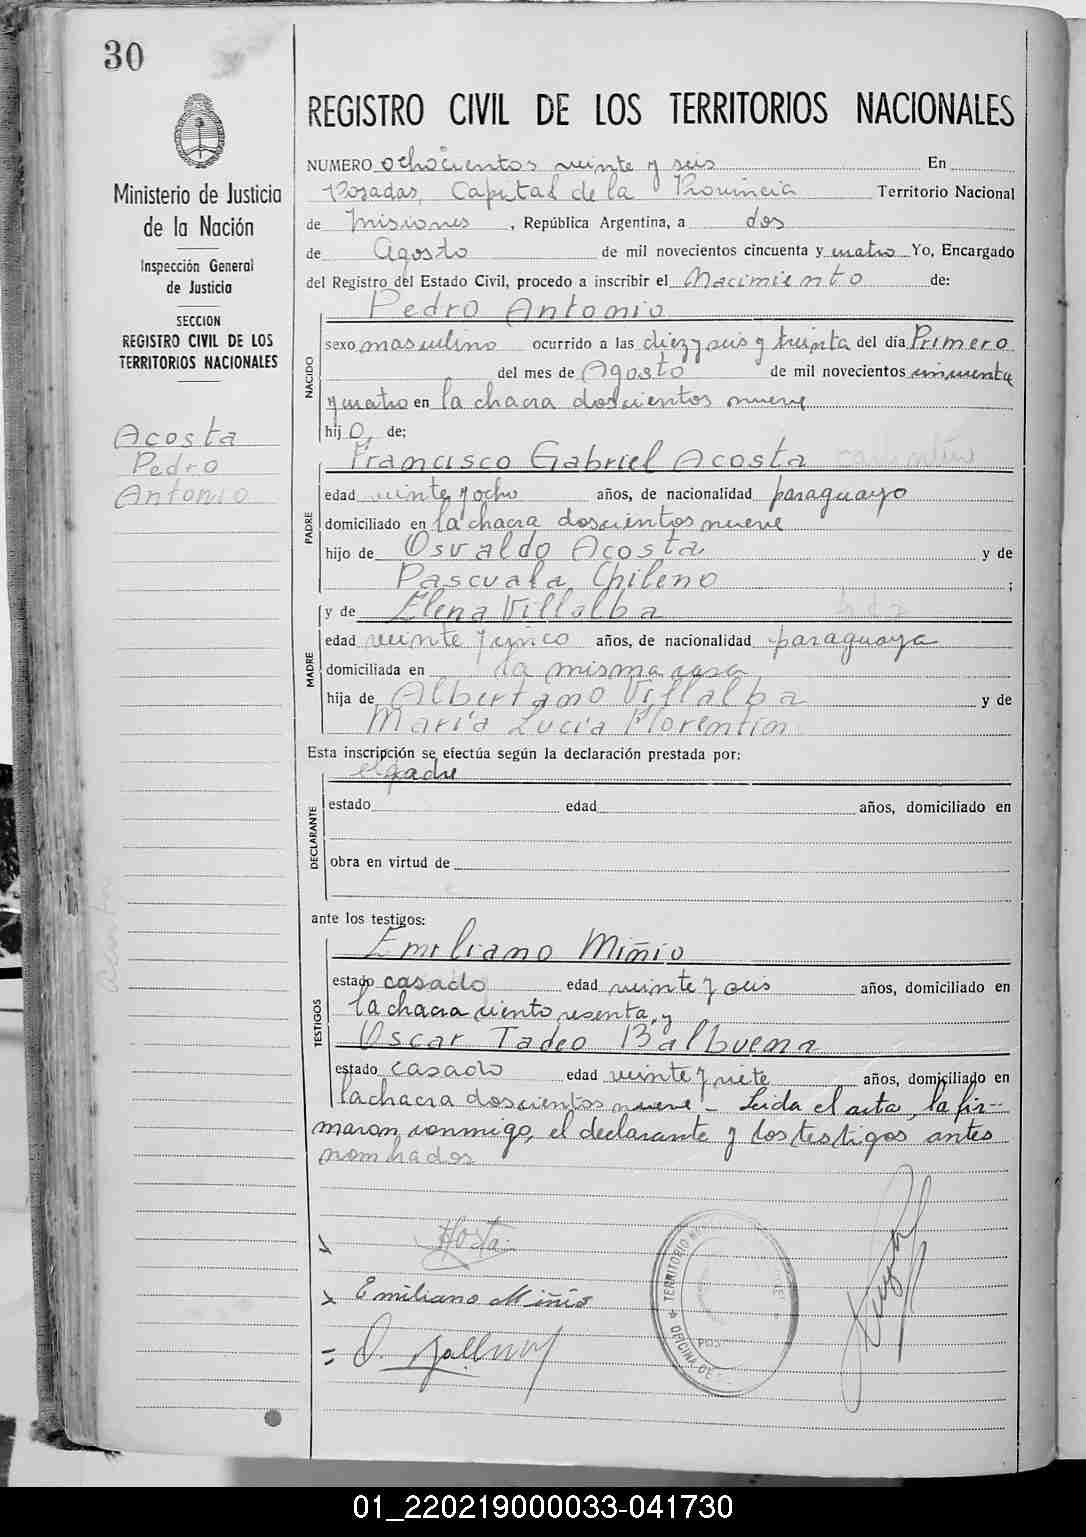 30
REGISTRO CIVIL DE LOS TERRITORIOS NACIONALES
Ministerio de Justicia
de la Nación
Inspección General
de Justicia
SECCION
REGISTRO CIVIL DE LOS
TERRITORIOS NACIONALES
Acosta
Pedro
Antonio
NUMERO ochocientos veinte y seis En
Posadas, Capital de la Provincia Territorio Nacional
de Misiones, República Argentina, a dos
de Agosto de mil novecientos cincuenta y cuatro Yo, Encargado
del Registro del Estado Civil, procedo a inscribir el Nacimiento de:
Pedro Antonio
NACIDO
sexo masculino ocurrido a las diez y seis y treinta del día Primero
del mes de Agosto de mil novecientos cincuenta
y cuatro en la chacra doscientos nueve
hijo de:
Francisco Gabriel Acosta
PADRE
edad veinte y ocho años, de nacionalidad paraguayo
domiciliado en la chacra doscientos nueve
hijo de Osvaldo Acosta y de
Pascuala Chileno ;
y de Elena Villalba
MADRE
edad veinte y cinco años, de nacionalidad paraguaya
domiciliada en la misma casa
hija de Albertano Villalba y de
María Lucía Florentín
Esta inscripción se efectúa según la declaración prestada por:
el padre
DECLARANTE
estado edad años, domiciliado en
obra en virtud de
ante los testigos:
Emiliano Miñio
TESTIGOS
estado casado edad veinte y seis años, domiciliado en
la chacra ciento sesenta, y
Oscar Tadeo Balbuena
estado casado edad veinte y siete años, domiciliado en
la chacra doscientos nueve - Leida el acta, la fir-
maron conmigo, el declarante y los testigos antes
nombrados
Emiliano Miñio
TERRITORIO
OFICINA DE
POS
01_220219000033-041730